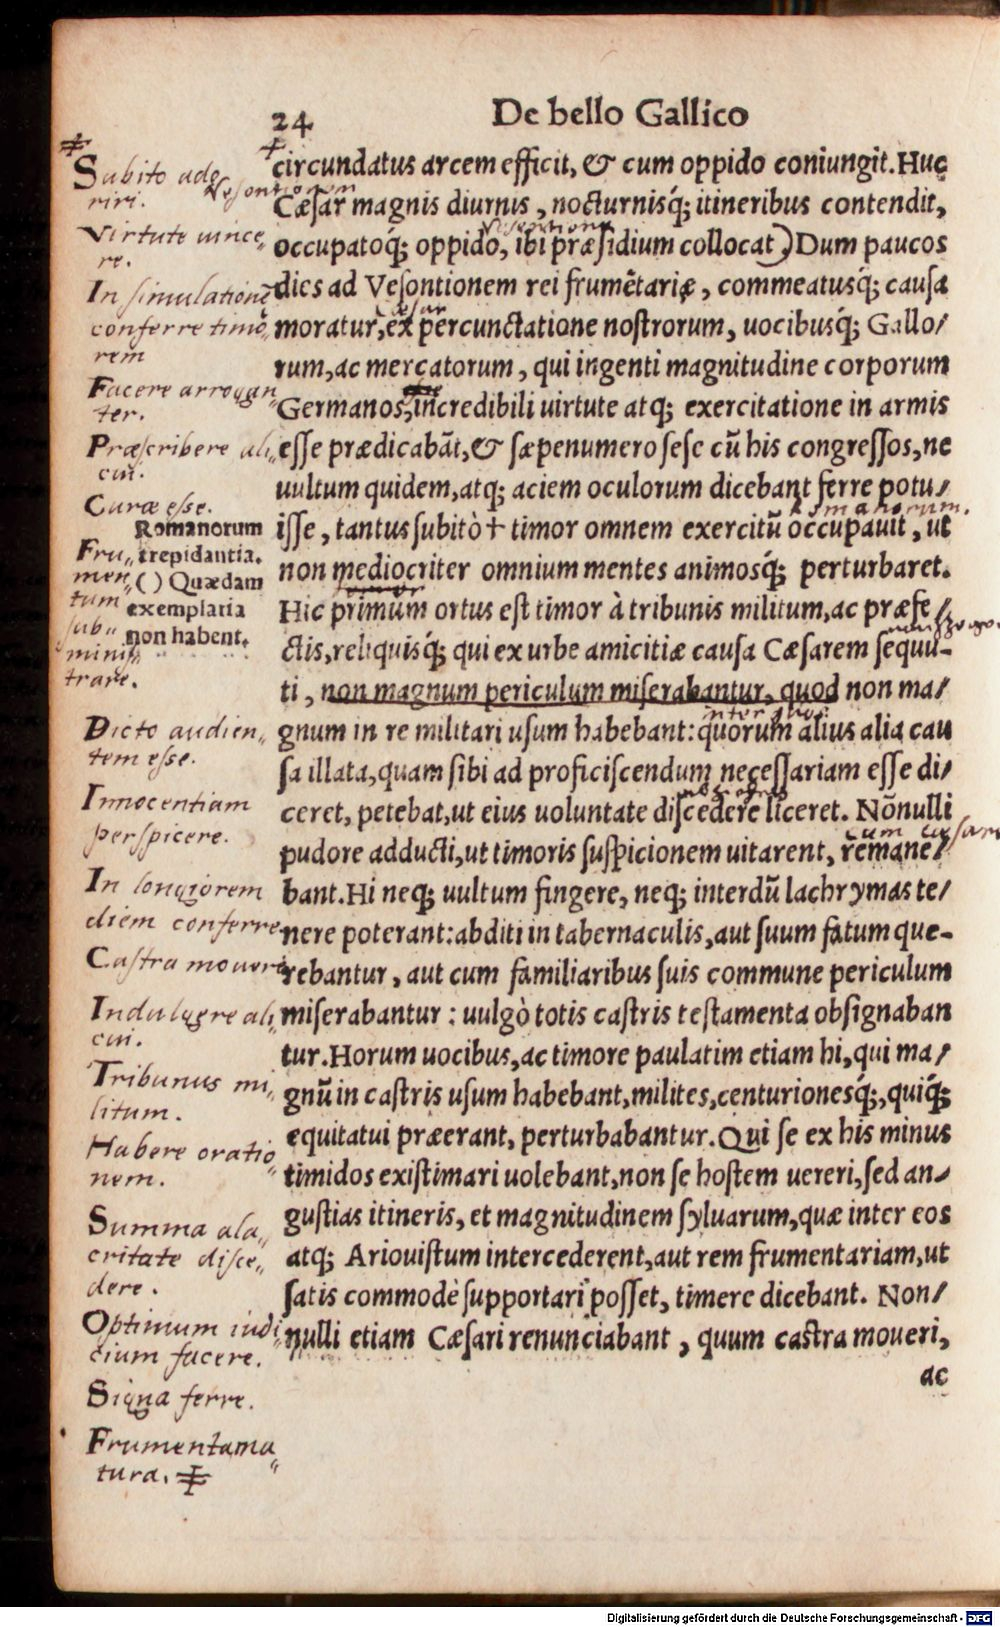 24
De bello Gallico
circundatus arcem efficit, & cum oppido coniungit. Huc
Vesontionem
Cæsar magnis diurnis, nocturnisq́; itineribus contendit,
Vesontione
occupatoq́; oppido, ibi præsidium collocat) Dum paucos
dies ad Vesontionem rei frumẽtariæ, commeatusq́; causa
Cæsar
moratur, ex percunctatione nostrorum, uocibusq́; Gallo/
rum, ac mercatorum, qui ingenti magnitudine corporum
Germanos, incredibili uirtute atq; exercitatione in armis
esse prædicabãt, & sæpenumero sese cũ his congressos, ne
uultum quidem, atq; aciem oculorum dicebant ferre potu/
Romanorum.
isse, tantus subitò † timor omnem exercitũ occupauit, ut
non mediocriter omnium mentes animosq́; perturbaret.
timor
Hic primum ortus est timor à tribunis militum, ac præfe/
ctis, reliquisq́; qui ex urbe amicitiæ causa Cæsarem sequu-
ti, non magnum periculum miserabantur, quod non ma/
gnum in re militari usum habebant: quorum alius alia cau
inter quos
sa illata, quam sibi ad proficiscendum necessariam esse di/
ceret, petebat, ut eius uoluntate discedere liceret. Nõnulli
cum Cæsare
pudore adducti, ut timoris suspicionem uitarent, remane/
bant. Hi neq; uultum fingere, neq; interdũ lachrymas te/
nere poterant: abditi in tabernaculis, aut suum fatum que-
rebantur, aut cum familiaribus suis commune periculum
miserabantur: uulgò totis castris testamenta obsignaban
tur. Horum uocibus, ac timore paulatim etiam hi, qui ma/
gnũ in castris usum habebant, milites, centurionesq́;, quiq́;
equitatui præerant, perturbabantur. Qui se ex his minus
timidos existimari uolebant, non se hostem uereri, sed an/
gustias itineris, et magnitudinem syluarum, quæ inter eos
atq; Ariouistum intercederent, aut rem frumentariam, ut
satis commodè supportari posset, timere dicebant. Non/
nulli etiam Cæsari renunciabant, quum castra moueri,
ac
Subito ado
riri.
Virtute uince„
re.
In simulationẽ
conferre timo„
rem
Facere arrogan„
ter.
Præscribere ali„
cui.
Curæ esse.
Romanorum
trepidantia.
( ) Quædam
exemplaria
non habent.
Fru„
men„
tum
sub„
minis„
trare.
Dicto audien„
tem esse.
Innocentiam
perspicere.
In longiorem
diem conferre.
Castra moueri
Indulgere ali„
cui.
Tribunus mi„
litum.
Habere oratio„
nem.
Summa ala„
critate disce„
dere.
Optimum iudi„
cium facere.
Signa ferre.
Frumenta ma„
tura.
Digitalisierung gefördert durch die Deutsche Forschungsgemeinschaft - DFG